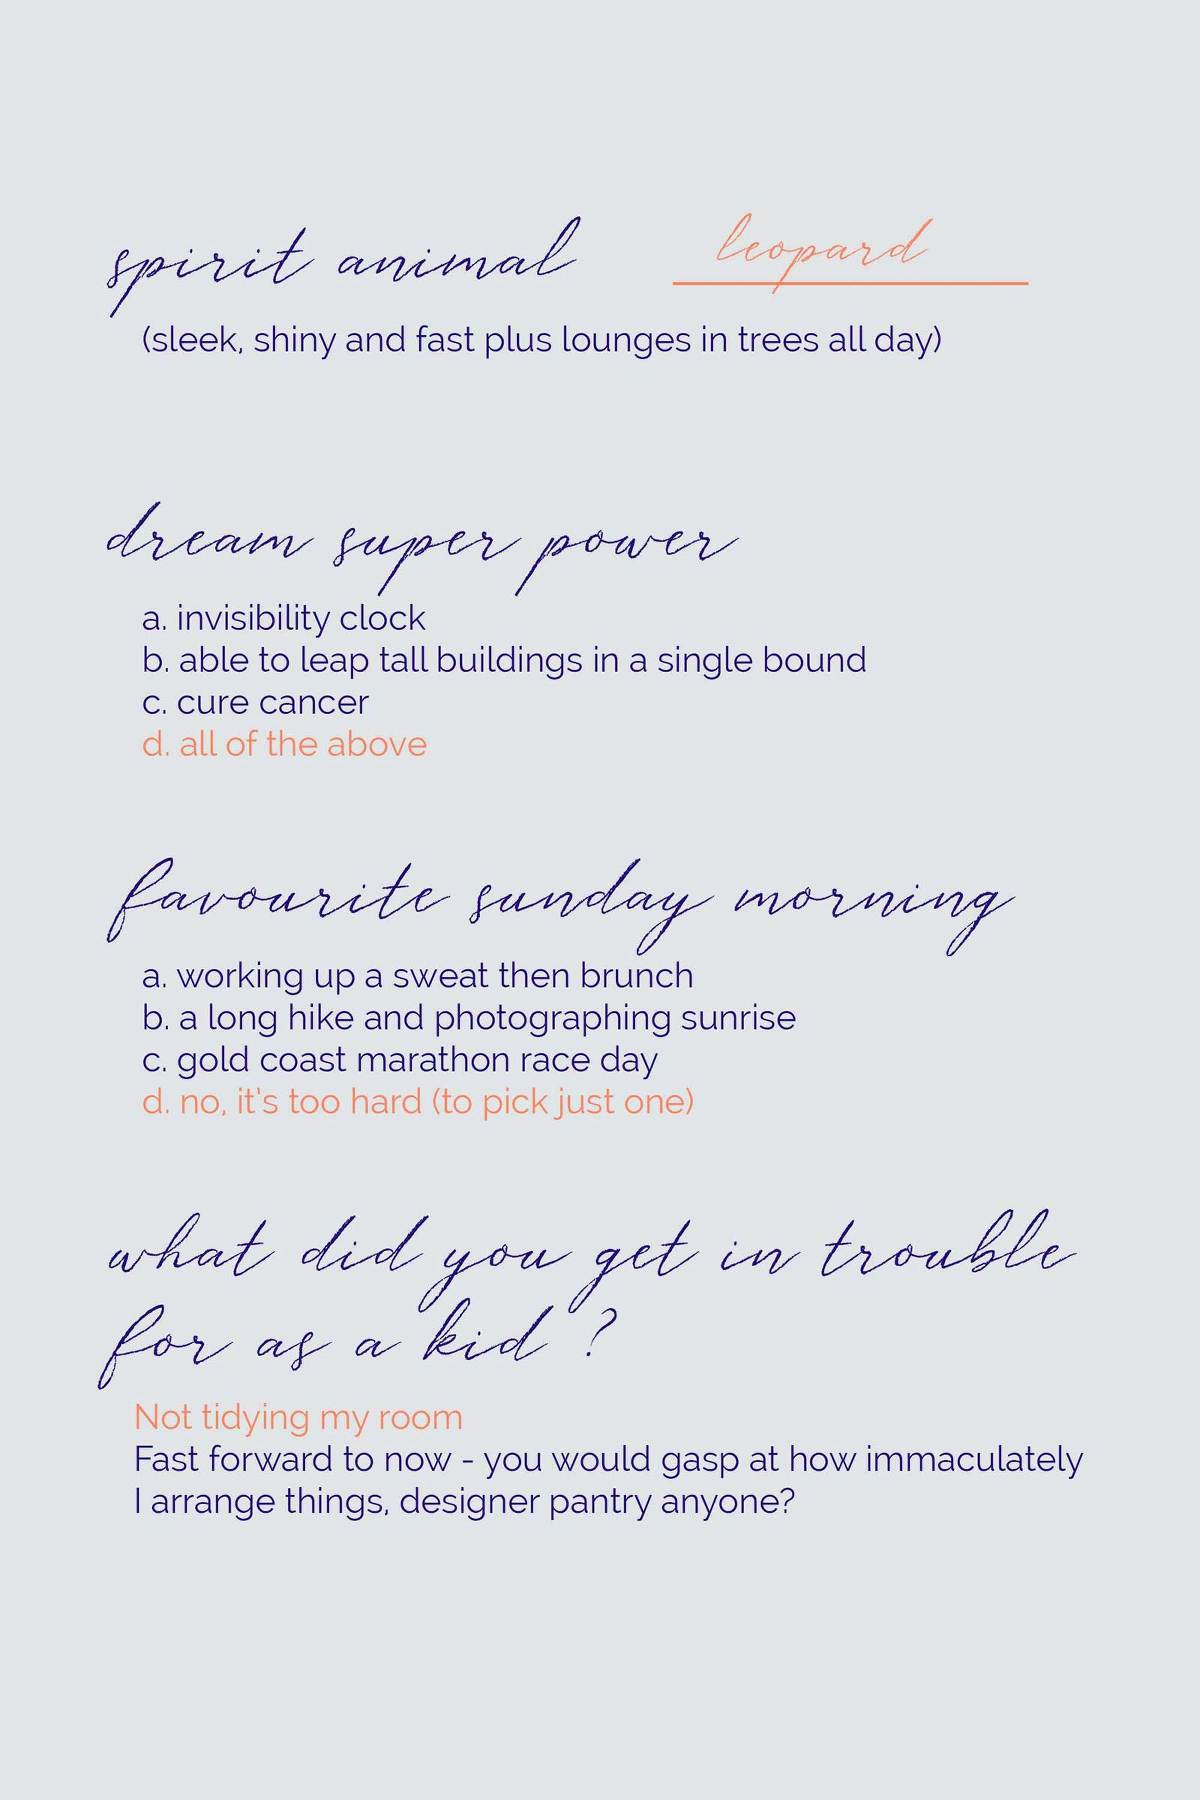 spirit animal leopard
(sleek, shiny and fast plus lounges in trees all day)
dream super power
a. invisibility clock
b. able to leap tall buildings in a single bound
c. cure cancer
d. all of the above
favourite sunday morning
a. working up a sweat then brunch
b. a long hike and photographing sunrise
c. gold coast marathon race day
d. no, it's too hard (to pick just one)
what did you get in trouble
for as a kid ?
Not tidying my room
Fast forward to now - you would gasp at how immaculately
I arrange things, designer pantry anyone?